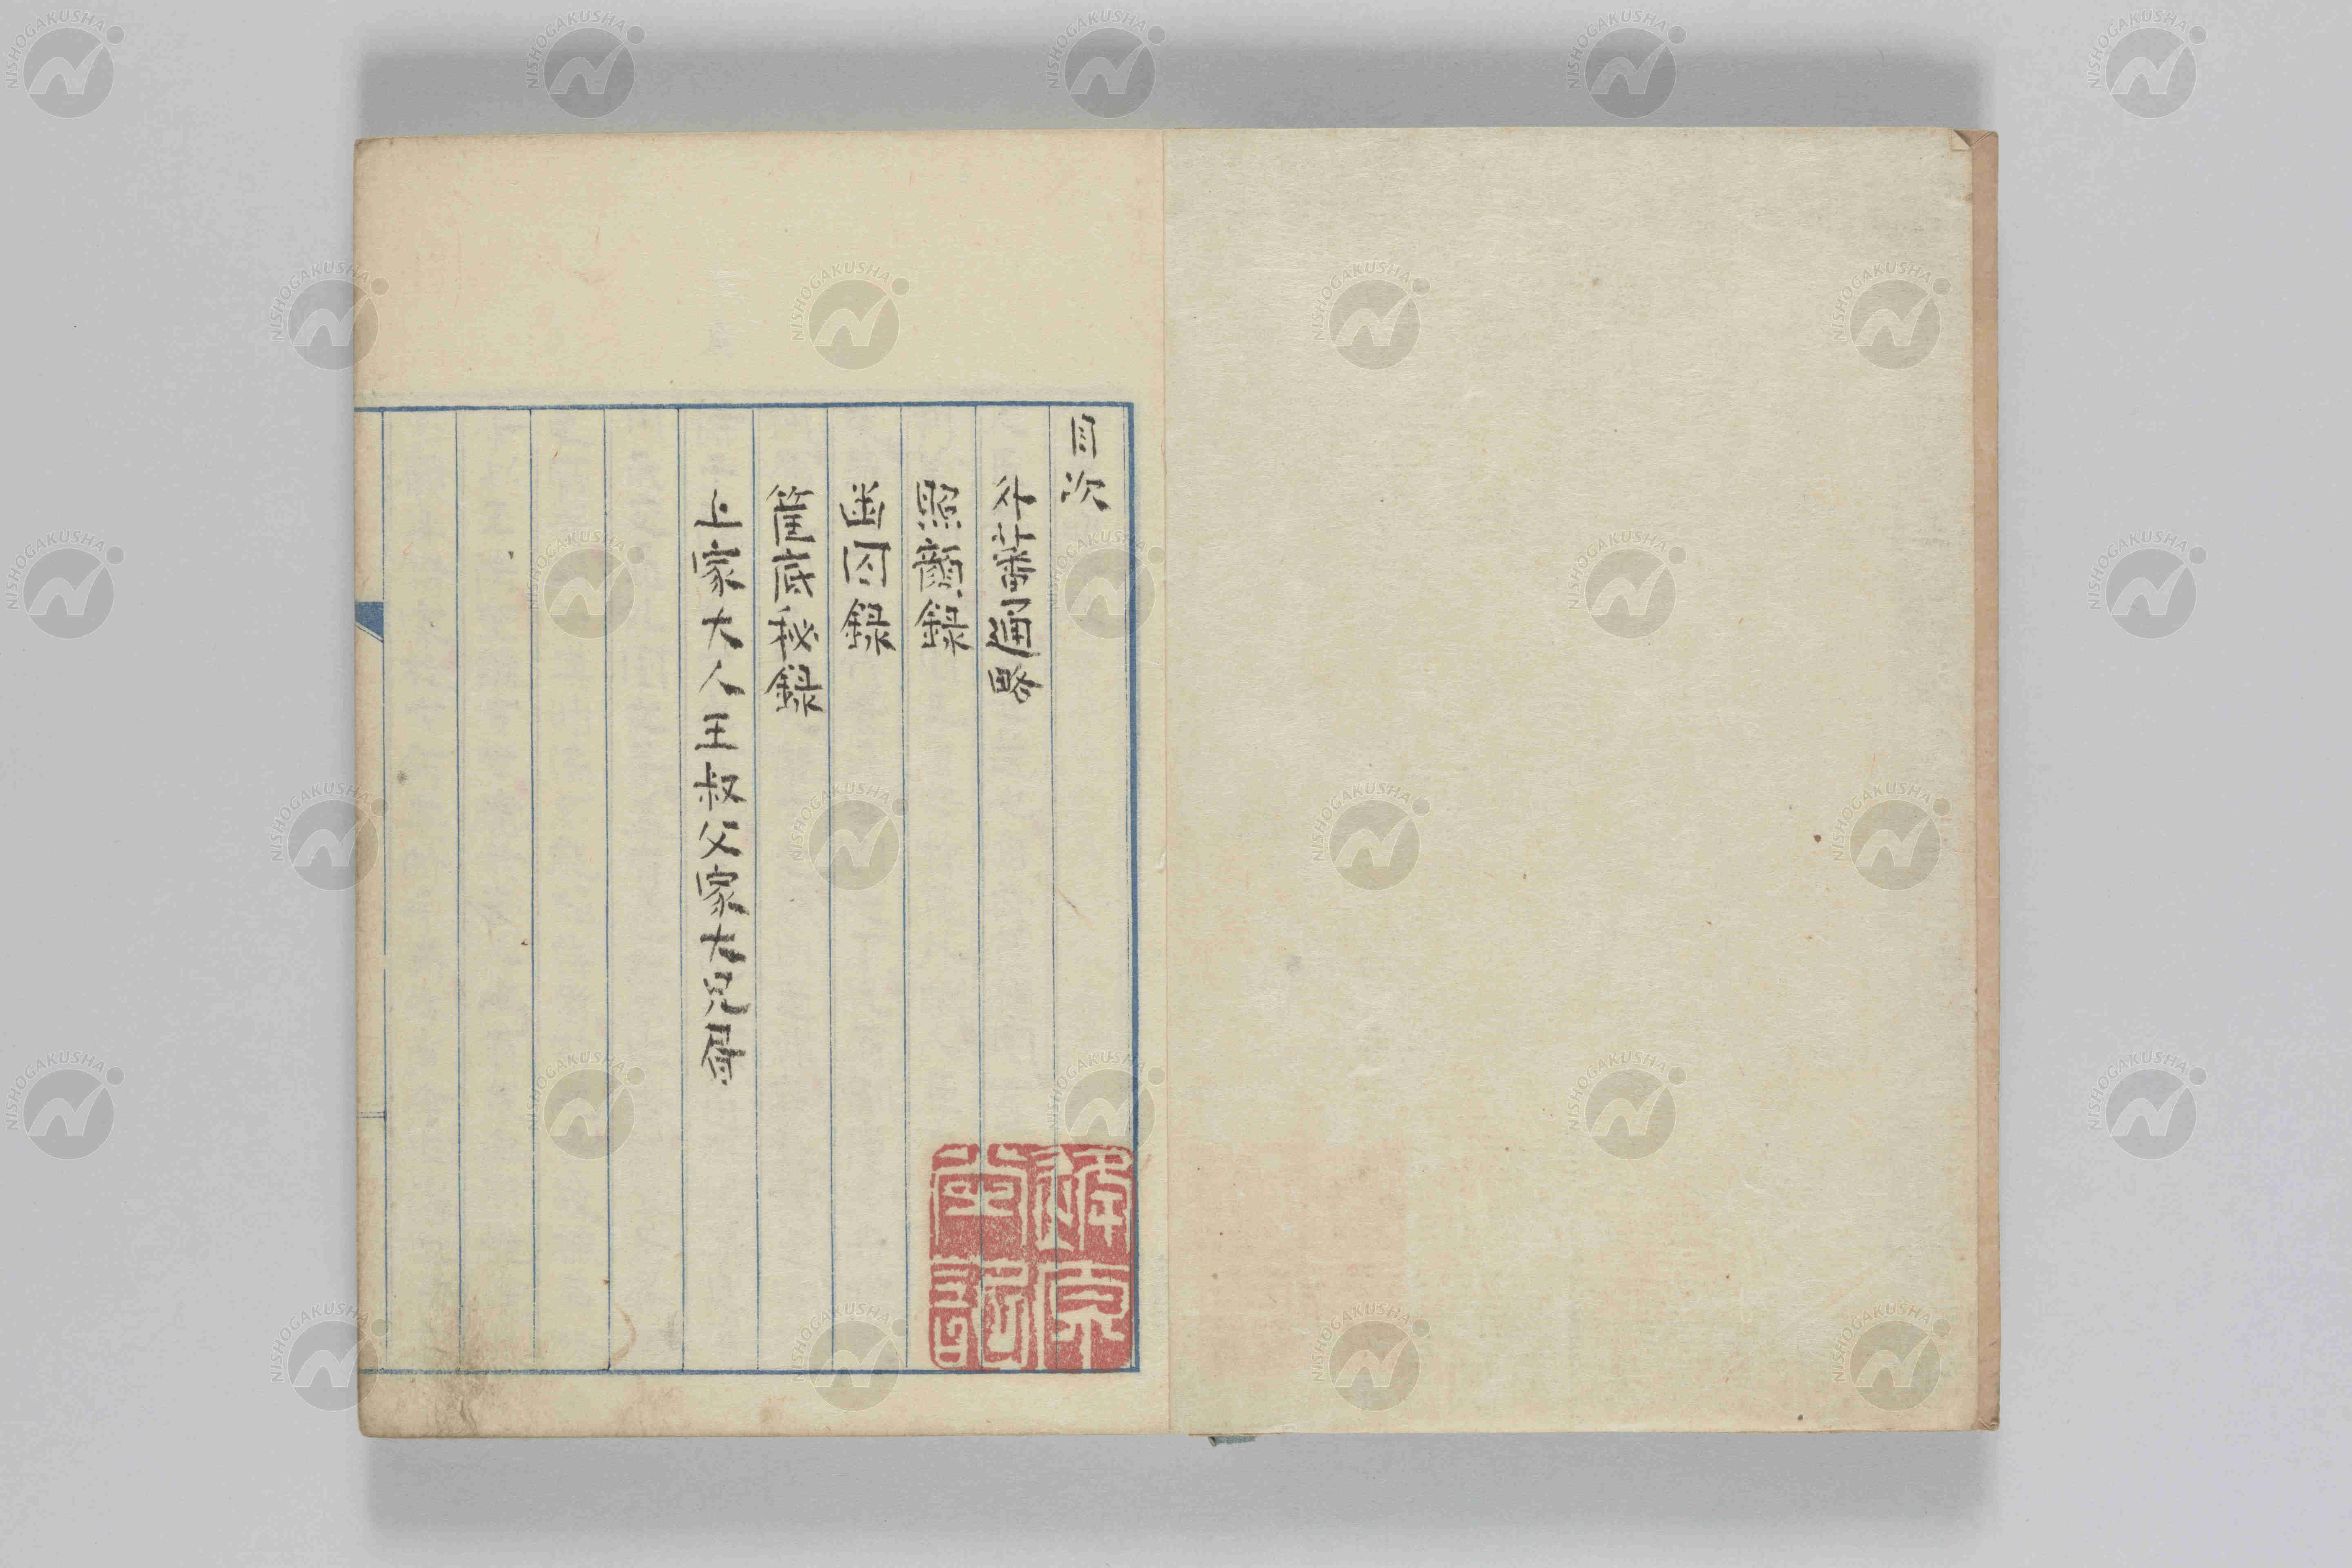 目次
外蕃通略
照顔録
幽囚録
筐底秘録
上家大人王叔父家大兄
NISHOGAKUSHA